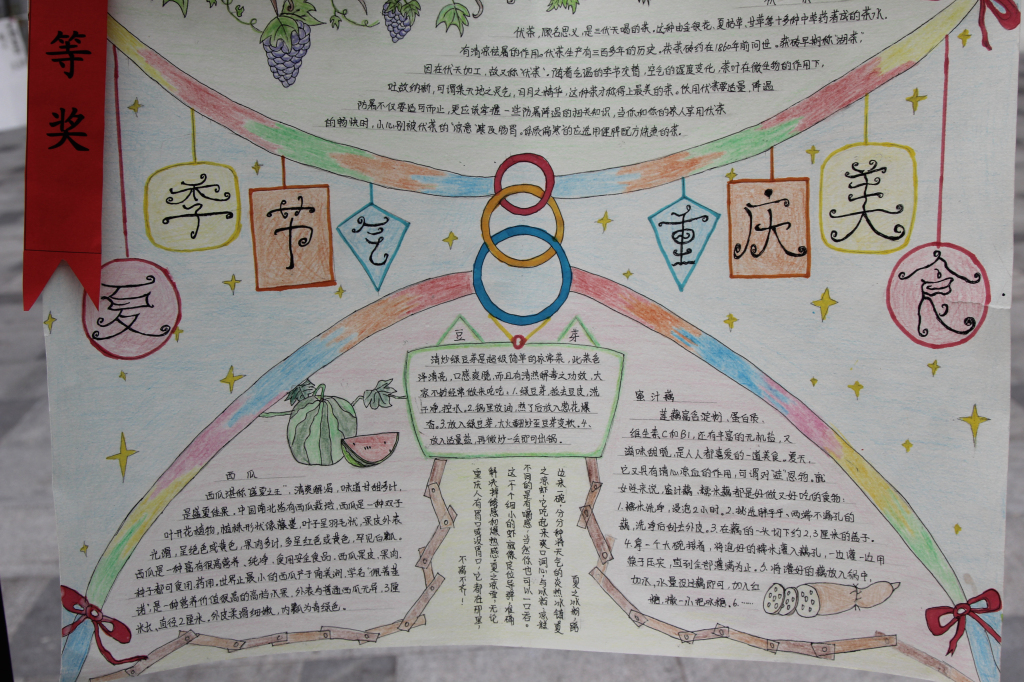 等奖
伏茶,顾名思义,是三伏天喝的茶。这种由金银花、夏枯草、甘草等十多种中草药煮成的茶水,
有清凉祛暑的作用。伏茶生产有三百多年的历史。茯茶大约在1860年前问世。茯砖早期称"湖茶",
因在伏天加工,故又称"伏茶"。随着气温的季节交替,空气的湿度变化,茶叶在微生物的作用下,
吐故纳新,可谓集天地之灵气,日月之精华,这种茶才称得上最美的茶。饮用伏茶要适量,降温
防暑不仅要适可而止,更应该掌握一些防暑降温的相关知识,当你和你的家人享用伏茶
的畅快时,小心别被伏茶的"凉意"激及肠胃。
夏季节气
重庆美食
豆芽
清炒绿豆芽是超级简单的家常菜,此菜色
泽清亮,口感爽脆,而且有清热解毒之功效,大
家不妨经常做来吃吃:1.绿豆芽掐去豆皮,洗
干净,控水。2.锅里放油,热了后放入葱花爆
香。3.放入绿豆芽,大火翻炒至豆芽变软。4.
放入适量盐,再微炒一会即可出锅。
西瓜
西瓜堪称"盛夏之王",清爽解渴,味道甘甜多汁,
是盛夏佳果,中国南北皆有西瓜栽培,西瓜是一种双子
叶开花植物,植株形状像藤蔓,叶子呈羽毛状,果皮外表
光滑,呈绿色或黄色,果肉多汁,多呈红色或黄色,罕见白瓤。
西瓜是一种富有很高营养、纯净、食用安全食品。西瓜果皮、果肉、
种子都可食用、药用。世界上最小的西瓜产于南美洲,学名"佩普基
诺"是一种营养价值很高的高档水果,外表与普通西瓜无异,3厘
米长,直径2厘米,外皮柔滑细嫩,内瓤为青绿色。
夏之冰粉,路
边来一碗,分分种将天气的炎热冰镇
之凉虾,它吃起来爽口润心,与冰粉、凉糕
不同的是有嚼感,当然你也可以一口吞。
这一个个细小的虾就像定位导弹,准确
解决掉燥感和燥热感!夏之凉糕,无论
重庆人有胃口或没胃口,它都在那里,
不离不弃!
蜜汁藕
莲藕富含淀粉、蛋白质、
维生素C和B1,还有丰富的无机盐,又
滋味甜脆,是人人都喜爱的一道美食。夏天,
它又具有清心凉血的作用,可谓对"症"恩物。就
女班来说,蜜汁藕、糯米藕都是好做又好吃的食物:
1.糯米洗净,浸泡2小时。2.挑选胖乎乎、两端不漏孔的
藕,洗净后刮去外皮。3.在藕的一头切下约2.5厘米的盖子。
4.拿一个大碗接着,将泡好的糯米灌入藕孔,一边灌一边用
筷子压实,直到全部灌满为止。5.将灌好的藕放入锅中,
加水,水量没过藕即可,加入红
糖、撒一小把冰糖。6.……